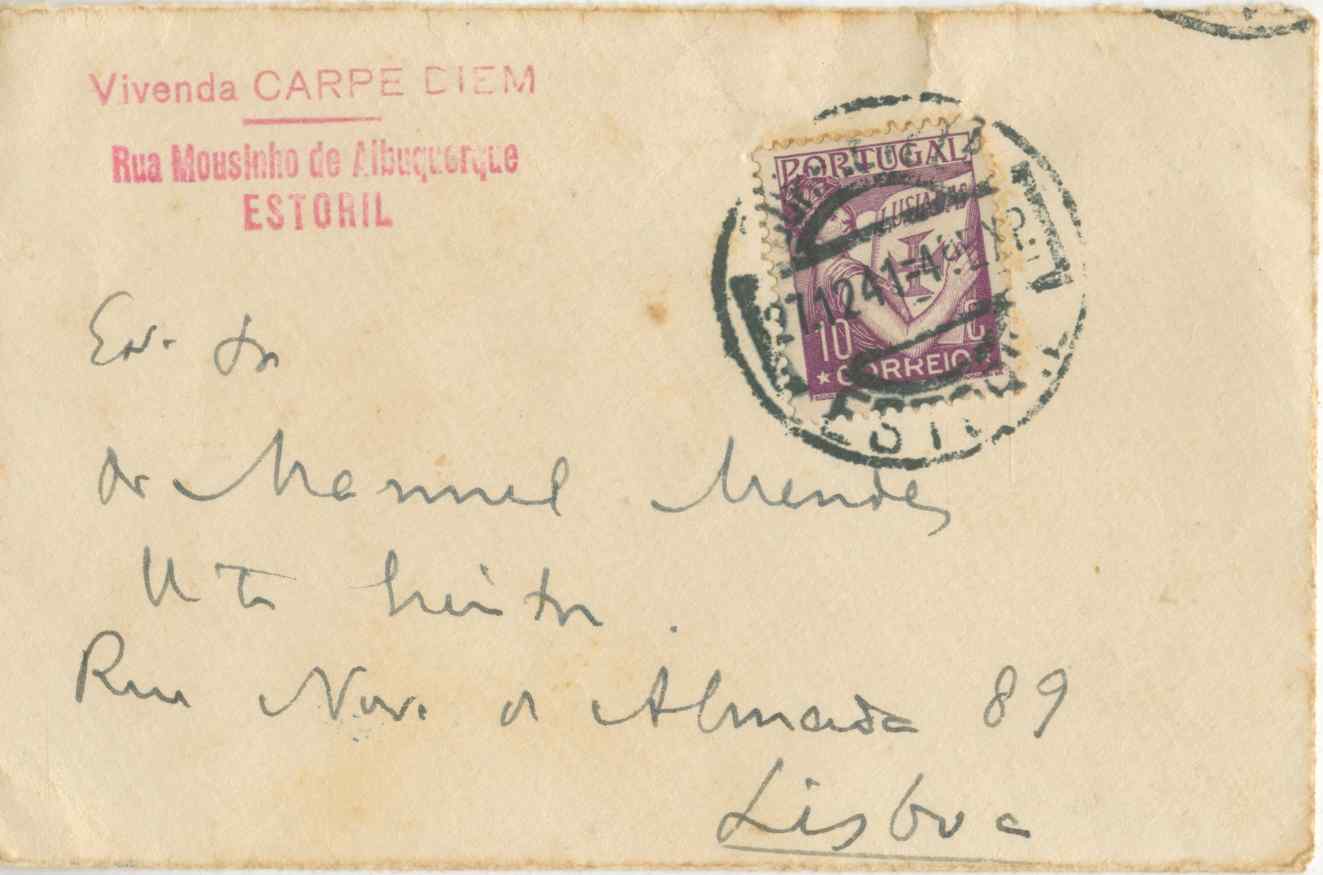 Vivenda CARPE DIEM
Rua Mousinho de Albuquerque
ESTORIL
PORTUGAL
LUSIADAS
7.12 41-4
10 C
★ CORREIO
ESTORIL
Ex. Sr
Dr Manuel Mendes
Rua Nov. d Almada 89
Lisboa